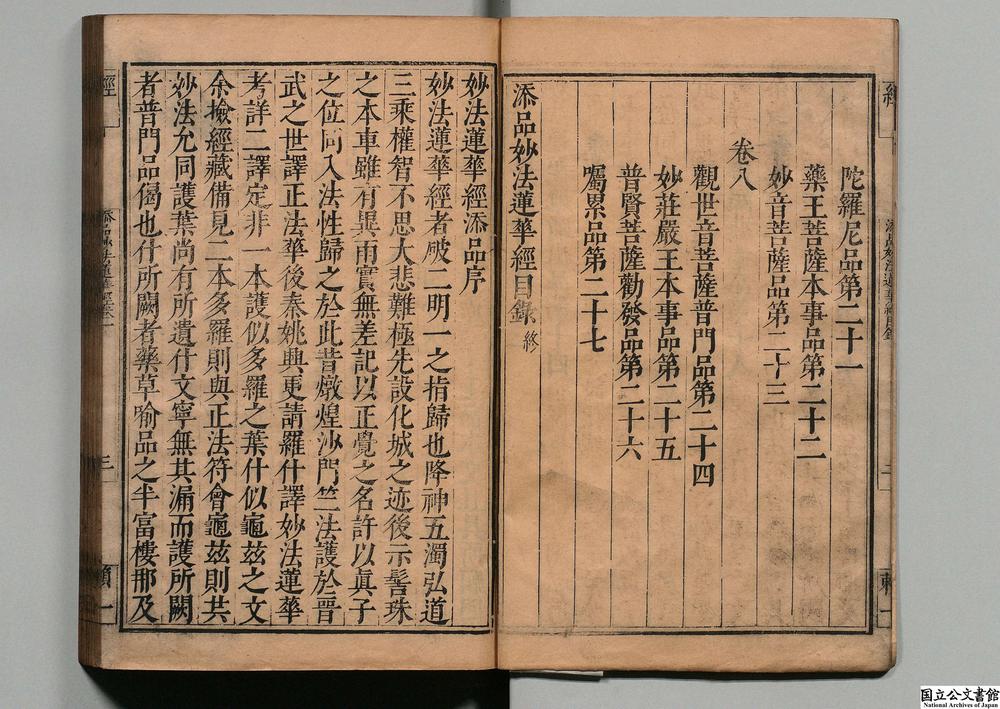 陀羅尼品第二十一
藥王菩薩本事品第二十二
妙音菩薩品第二十三
卷八
觀世音菩薩普門品第二十四
妙莊嚴王本事品第二十五
普賢菩薩勸發品第二十六
囑累品第二十七
添品妙法蓮華經目錄 終
妙法蓮華經添品序
妙法蓮華經者破二明一之指歸也降神五濁弘道
三乘權智不思大悲難極先設化城之迹後示髻珠
之本車雖有異雨實無差記以正覺之名許以真子
之位同入法性歸之於此昔燉煌沙門竺法護於晉
武之世譯正法華後秦姚興更請羅什譯妙法蓮華
考詳二譯定非一本護似多羅之葉什似龜茲之文
余撿經藏備見二本多羅則與正法符會龜茲則共
妙法允同護葉尚有所遺什文寧無其漏而護所闕
者普門品偈也什所闕者藥草喻品之半富樓那及
經
三
國立公文書館
National Archives of Japan